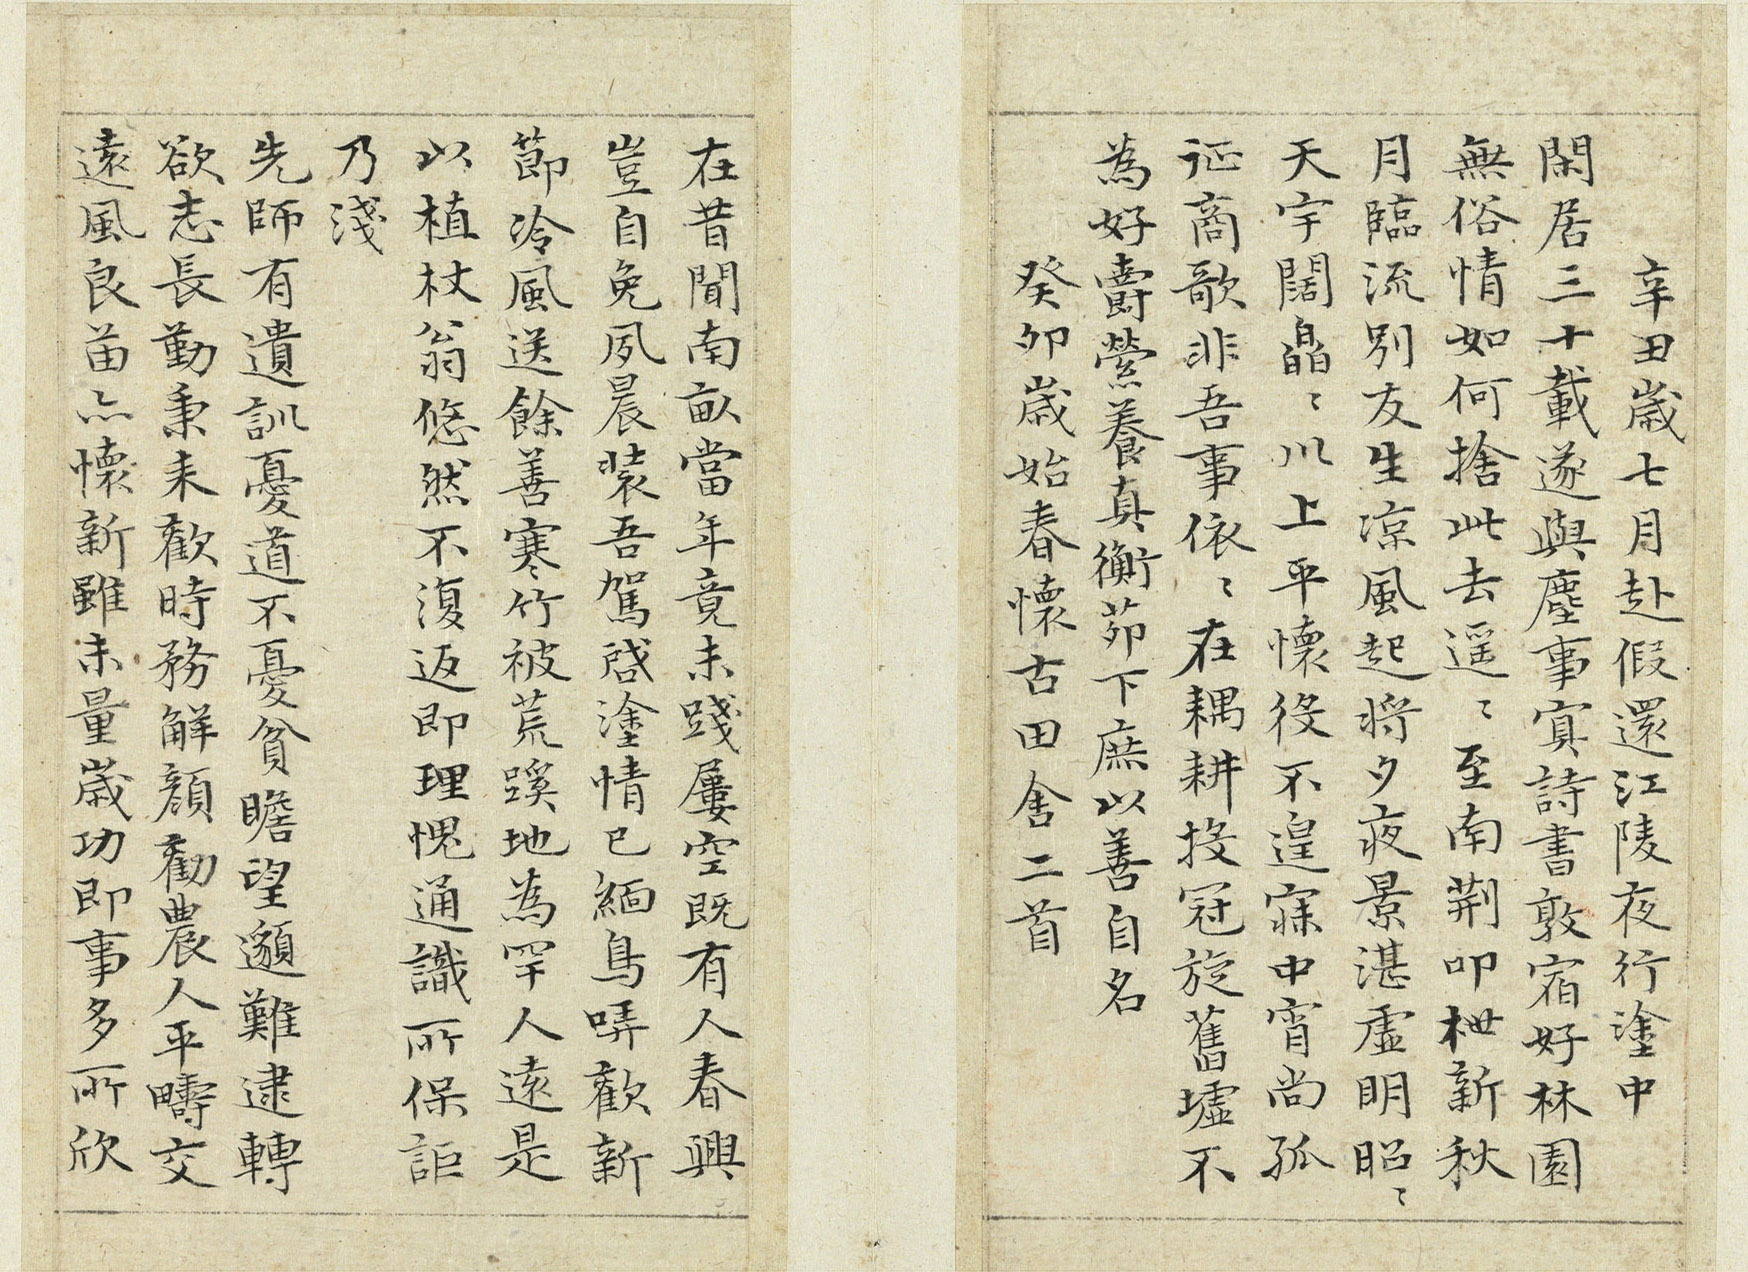 辛田歲七月赴假還江陵夜行塗中
閑居三十載遂與塵事㝠詩書敦宿好林園
無俗情如何捨此去遥〻至南荆叩枻新秋
月臨流別友生凉風起将夕夜景湛虛明昭〻
天宇闊皛〻川上平懷役不遑寐中宵尚孤
征商歌非吾事依〻在耦耕投冠旋舊墟不
為好爵縈養真衡茆下庶以善自名
癸卯歲始春懷古田舎二首
在昔聞南畝當年竟未踐屢空既有人春興
豈自免夙晨装吾駕啓塗情已緬鳥哢歡新
節冷風送餘善寒〻竹被荒蹊地為罕人遠是
以植杖翁悠然不復返即理愧通識所保詎
乃淺
先師有遺訓憂道不憂貧瞻望邈難逮轉
欲志長勤秉耒歡時務解顔勸農人平疇交
遠風良苗亦懷新雖未量歲功即事多所欣